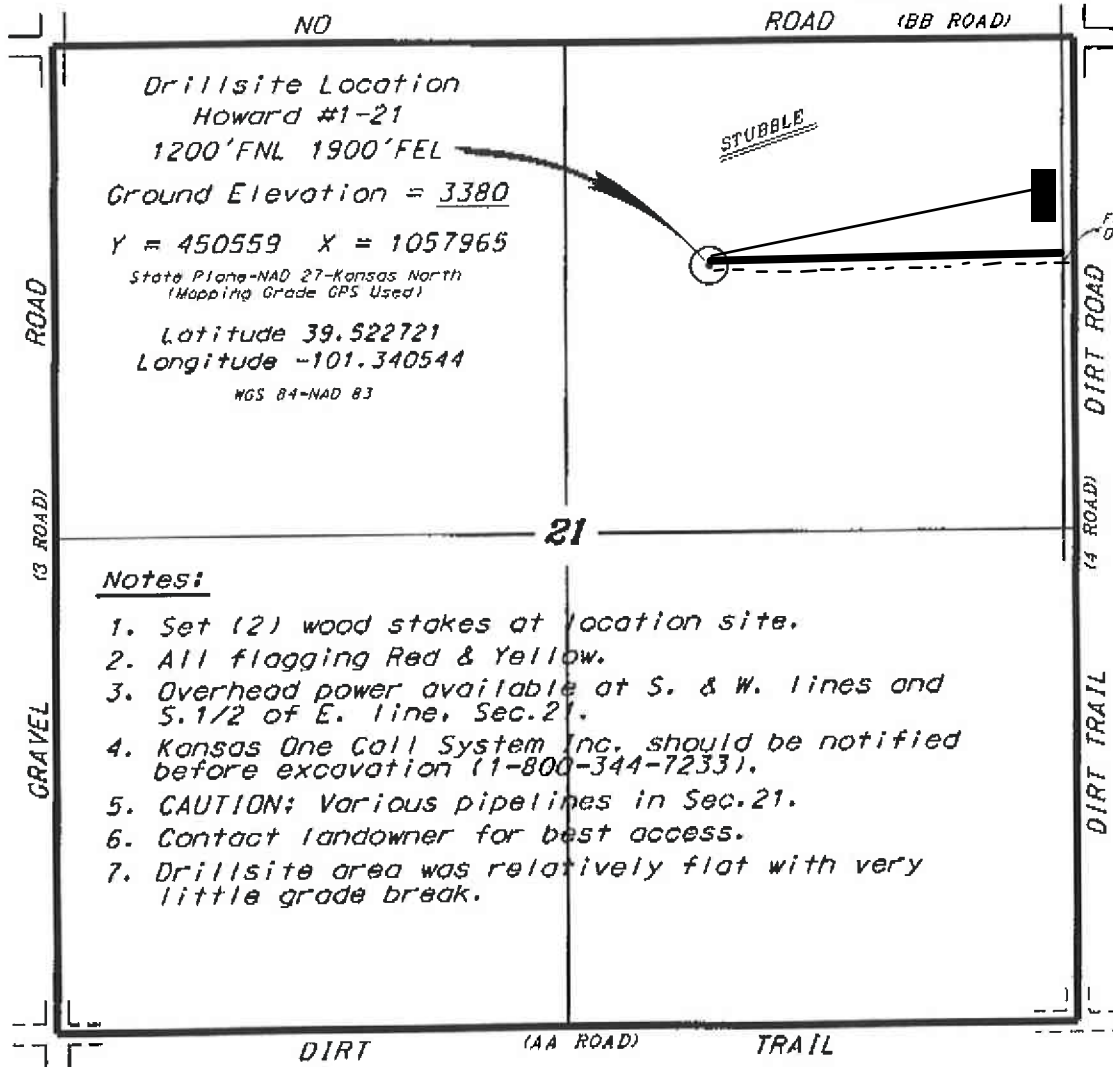 NO
ROAD (BB ROAD)
Drillsite Location
Howard #1-21
1200'FNL 1900'FEL
Ground Elevation = 3380
Y = 450559 X = 1057965
State Plane-NAD 27-Kansas North
(Mapping Grade GPS Used)
Latitude 39.522721
Longitude -101.340544
WGS 84-NAD 83
STUBBLE
ROAD
(3 ROAD)
GRAVEL
DIRT ROAD
(4 ROAD)
DIRT TRAIL
21
Notes:
1. Set (2) wood stakes at location site.
2. All flagging Red & Yellow.
3. Overhead power available at S. & W. lines and
S.1/2 of E. line, Sec.21.
4. Kansas One Call System Inc. should be notified
before excavation (1-800-344-7233).
5. CAUTION: Various pipelines in Sec.21.
6. Contact landowner for best access.
7. Drillsite area was relatively flat with very
little grade break.
DIRT
(AA ROAD)
TRAIL